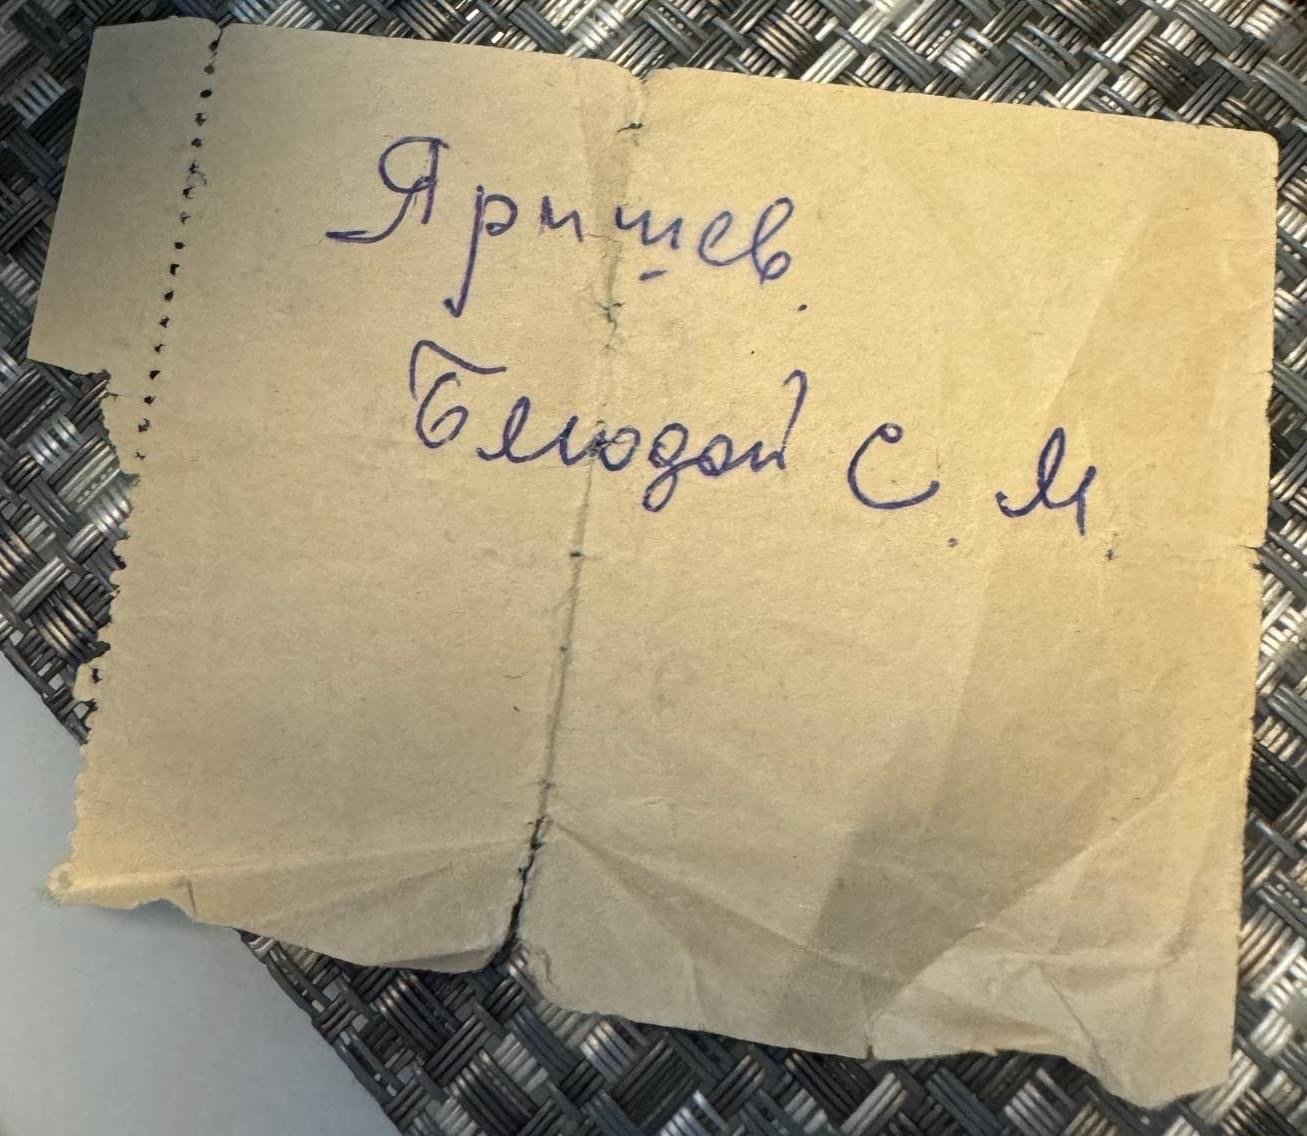 Яришев.
Блюдой С. М.